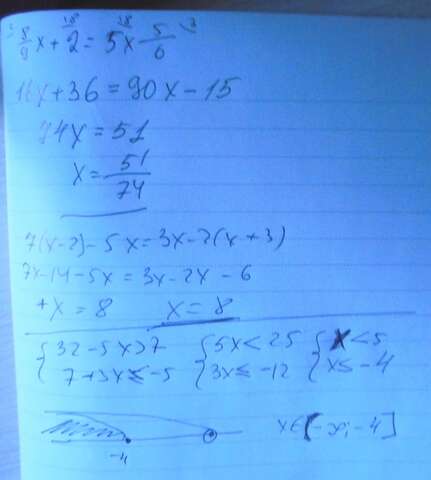 8/9 x + 2 = 5x 5/6
16x+36 = 90x-15
74x = 51
x = 51/74
7(x-2)-5x=3x-2(x+3)
7x-14-5x = 3x-2x-6
+x = 8 x = 8
{32-5x>7 {5x<25 {x<5
{7+3x≤-5 {3x≤-12 {x≤-4
-4 x∈(-∞;-4]